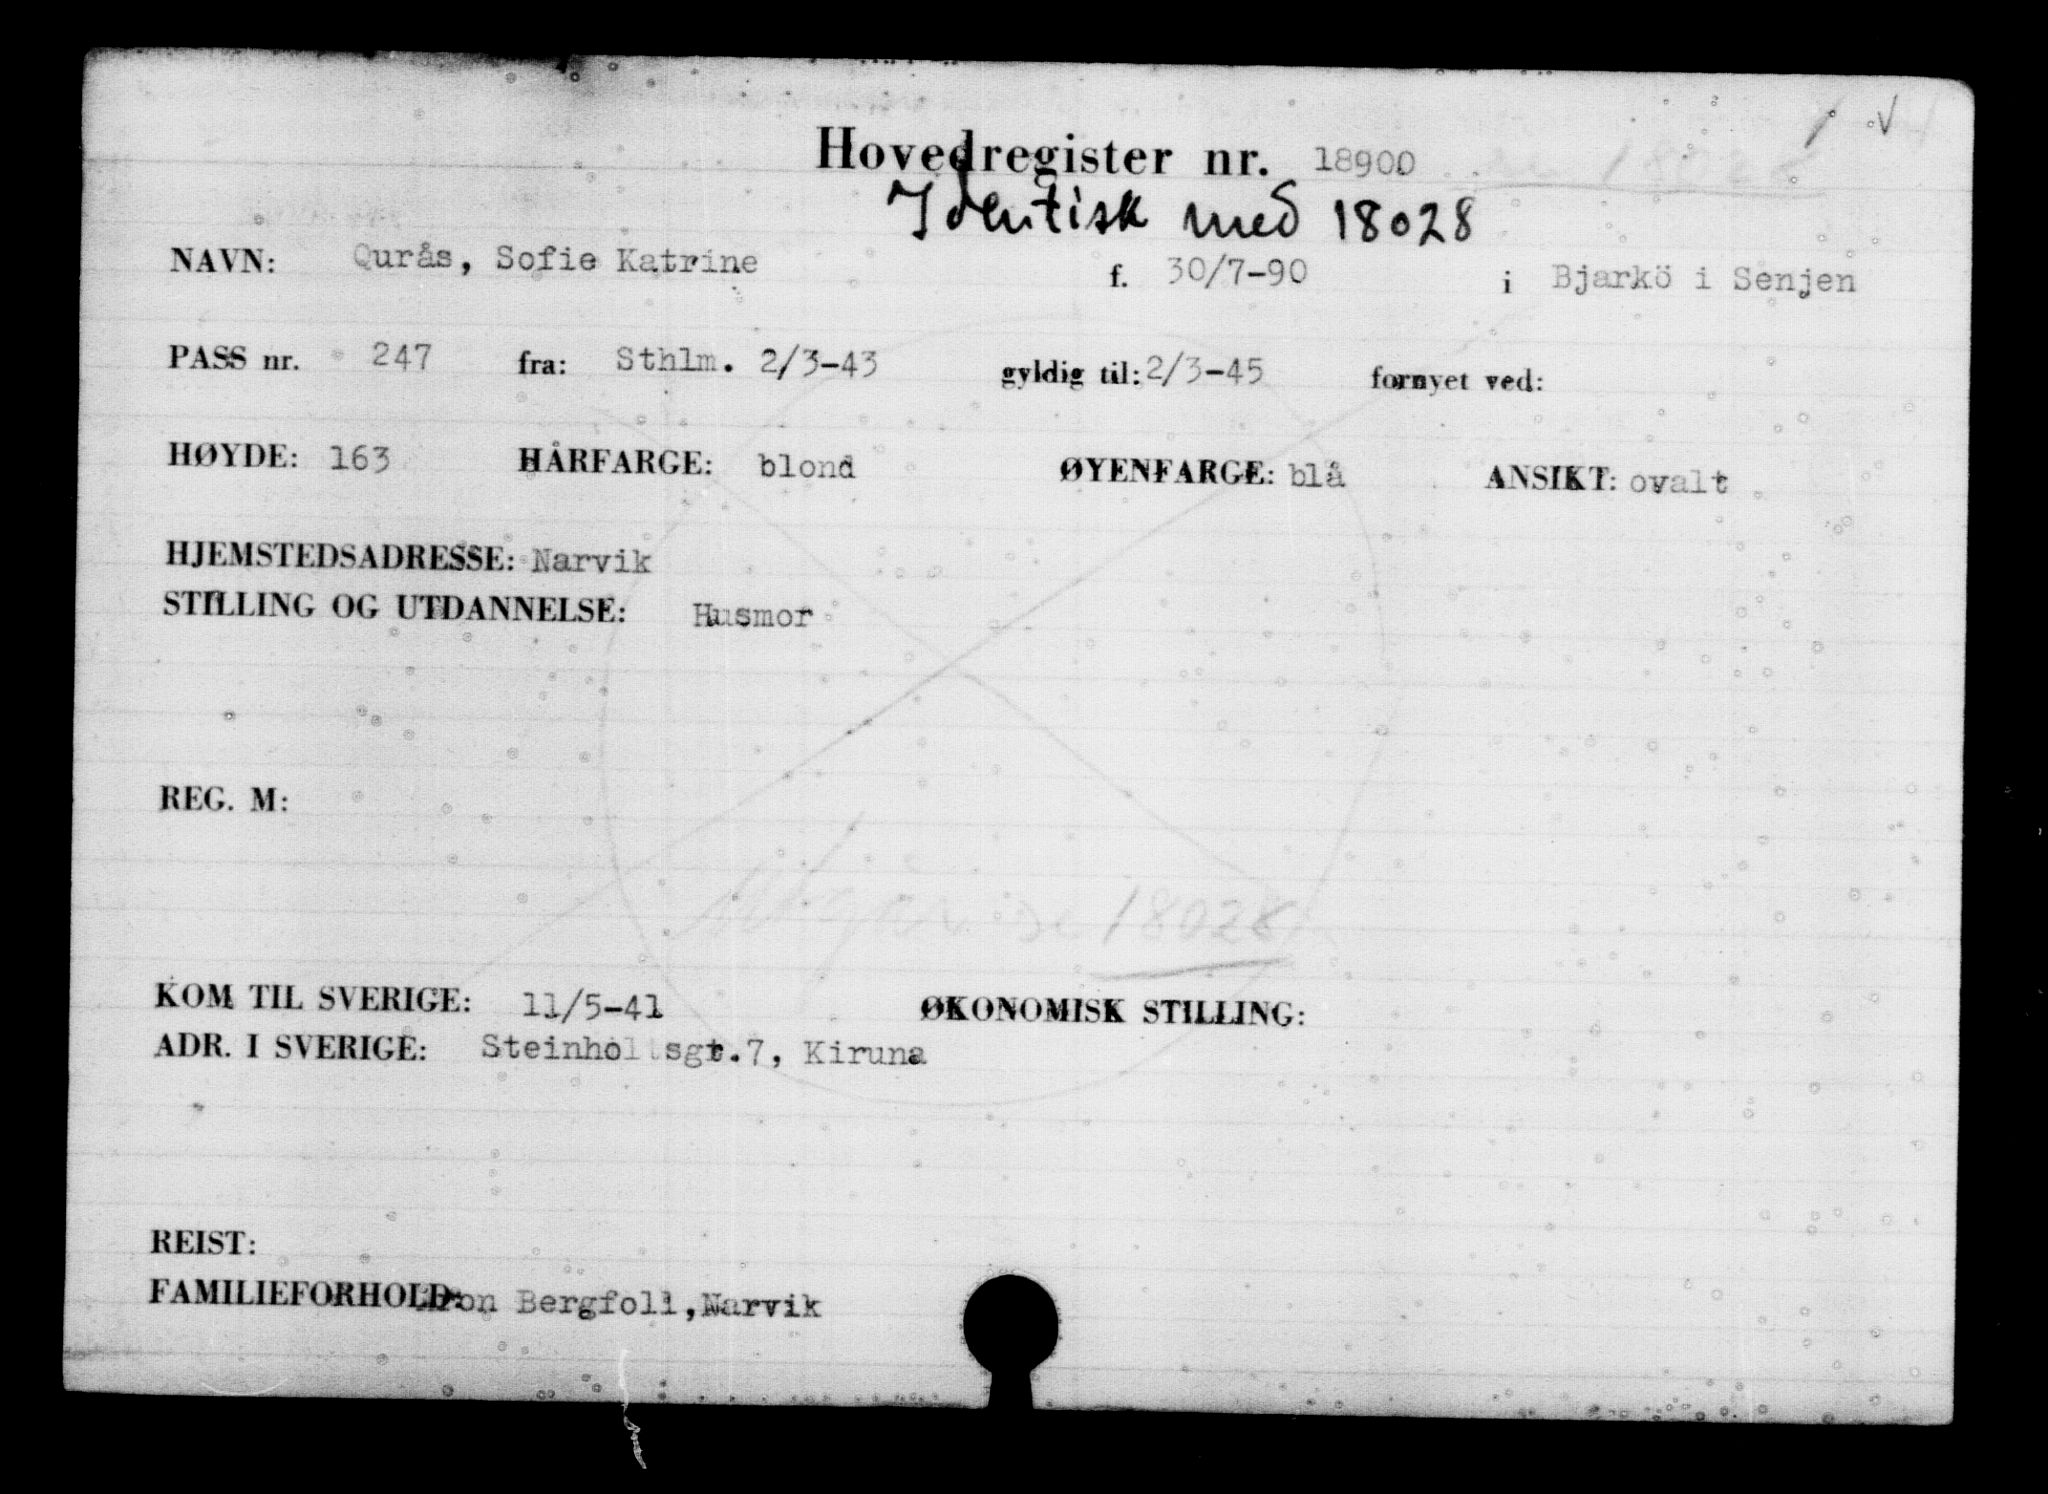 Hovedregister nr. 18900 se 18028
Identisk med 18028
NAVN: Qurås, Sofie Katrine f. 30/7-90 i Bjarkö i Senjen
PASS nr. 247 fra: Sthlm. 2/3-43 gyldig til: 2/3-45 fornyet ved:
HØYDE: 163 HÅRFARGE: blond ØYENFARGE: blå ANSIKT: ovalt
HJEMSTEDSADRESSE: Narvik
STILLING OG UTDANNELSE: Husmor
REG. M:
Utgår se 18028
KOM TIL SVERIGE: 11/5-41 ØKONOMISK STILLING:
ADR. I SVERIGE: Steinholtsgt.7, Kiruna
REIST:
FAMILIEFORHOLD: Bergfoll, Narvik